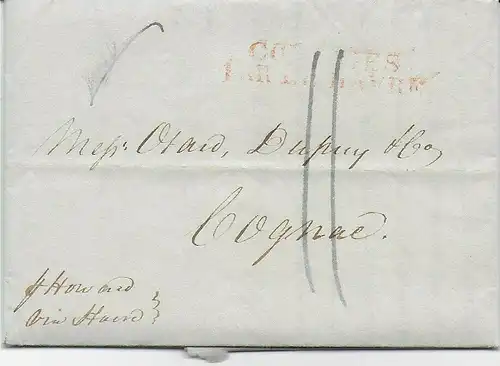 COLONIES
PAR LE HAVRE
11
Messrs Otard, Dupuy & Co
Cognac.
p Howard
via Havre